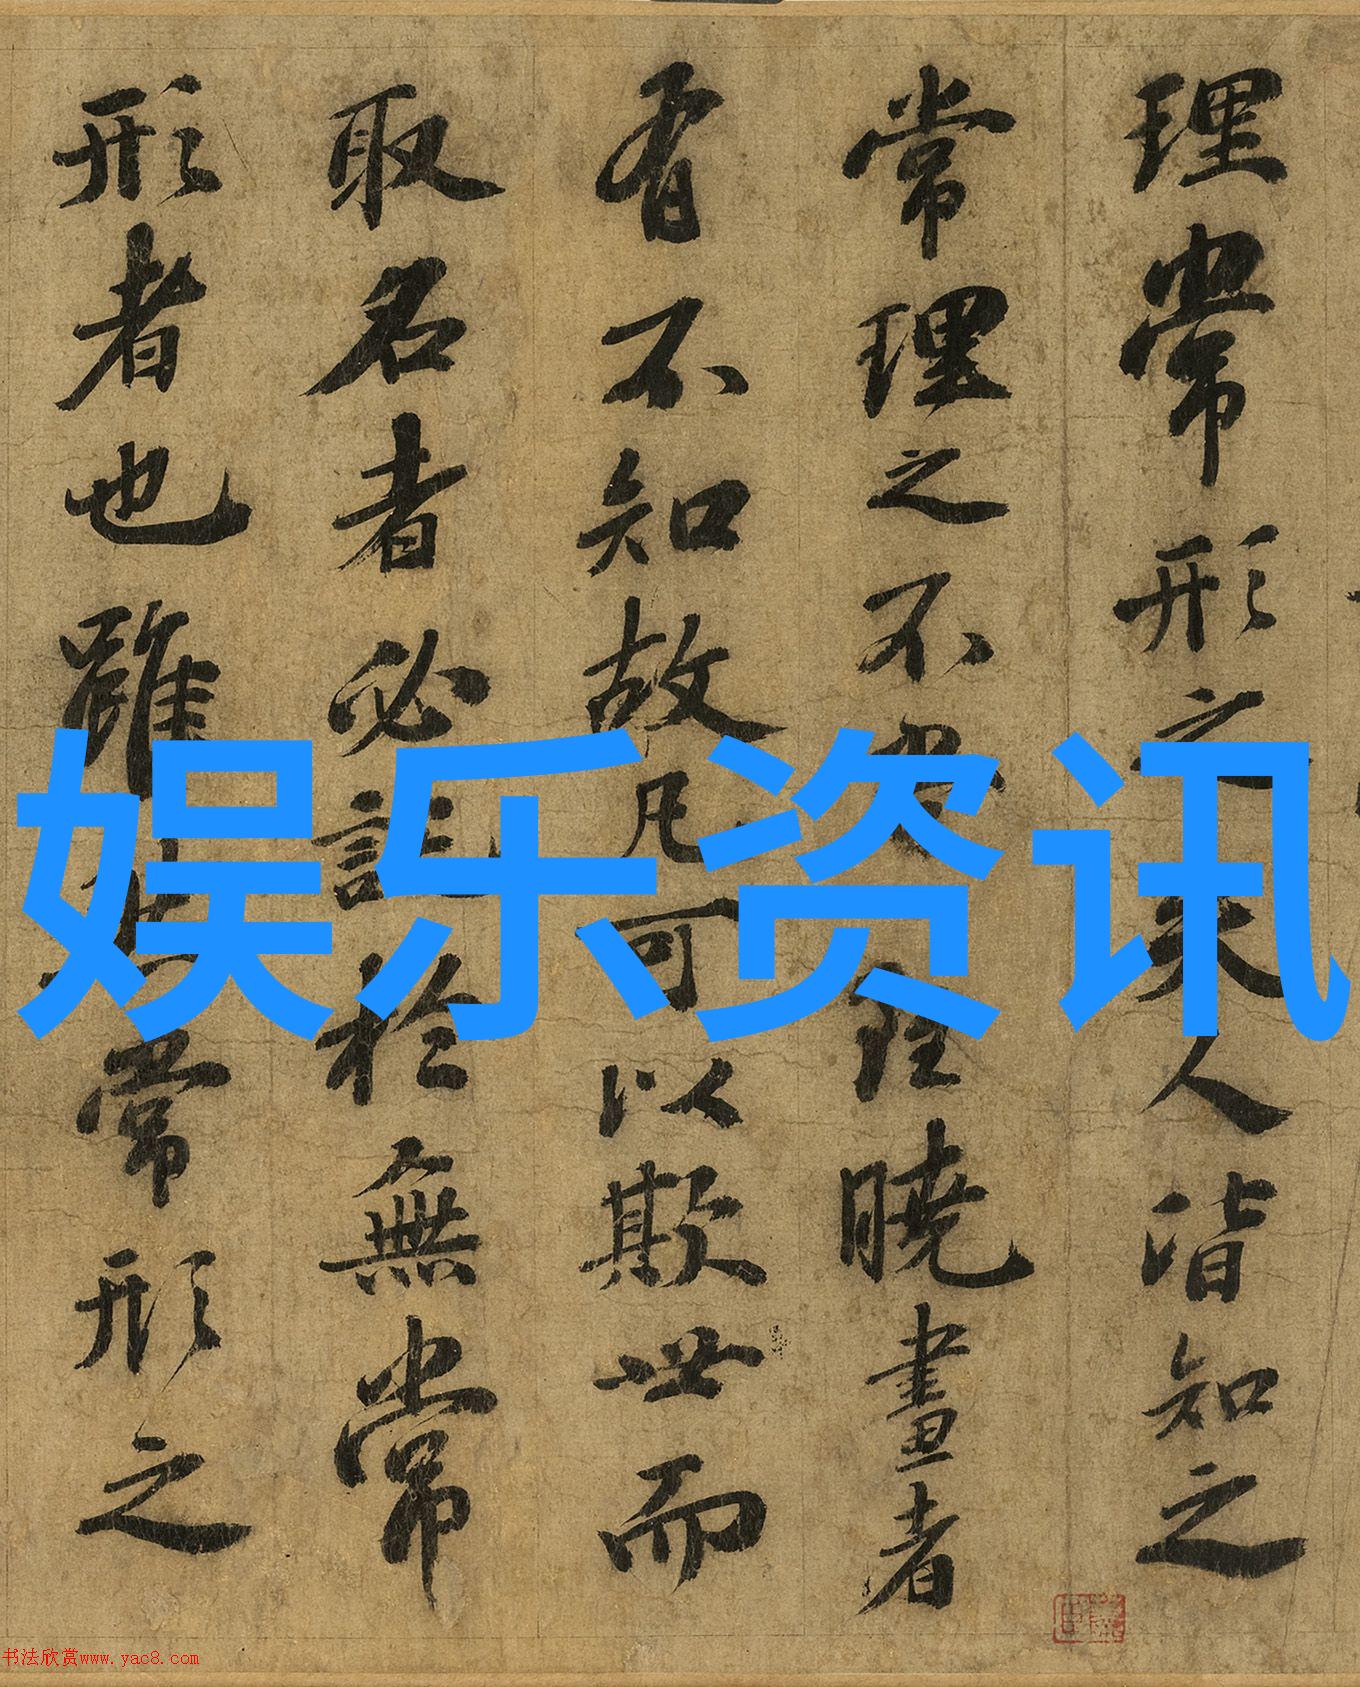 理常形之失人皆知之
常理之不曉畫者
有不知故凡可以欺世而
取名者必託於無常
形者也雖常形之
娱乐资讯
书法欣赏www.yac8.com